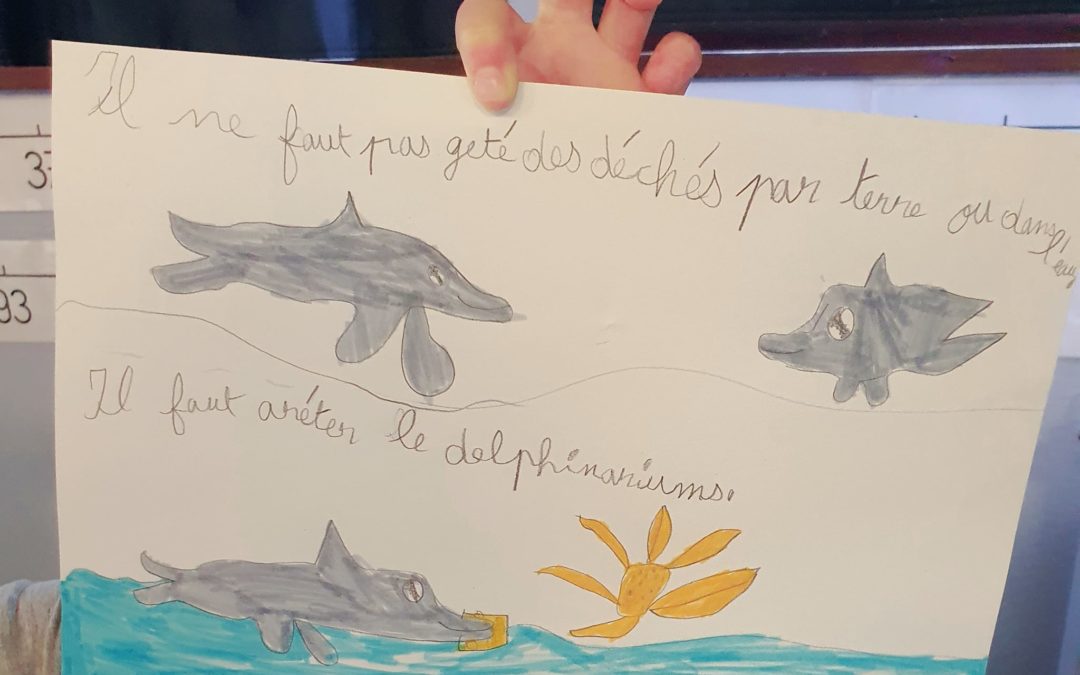 Il ne faut pas geté des déchés par terre ou dans l'eau
Il faut arréter le delphinariums.
37
93